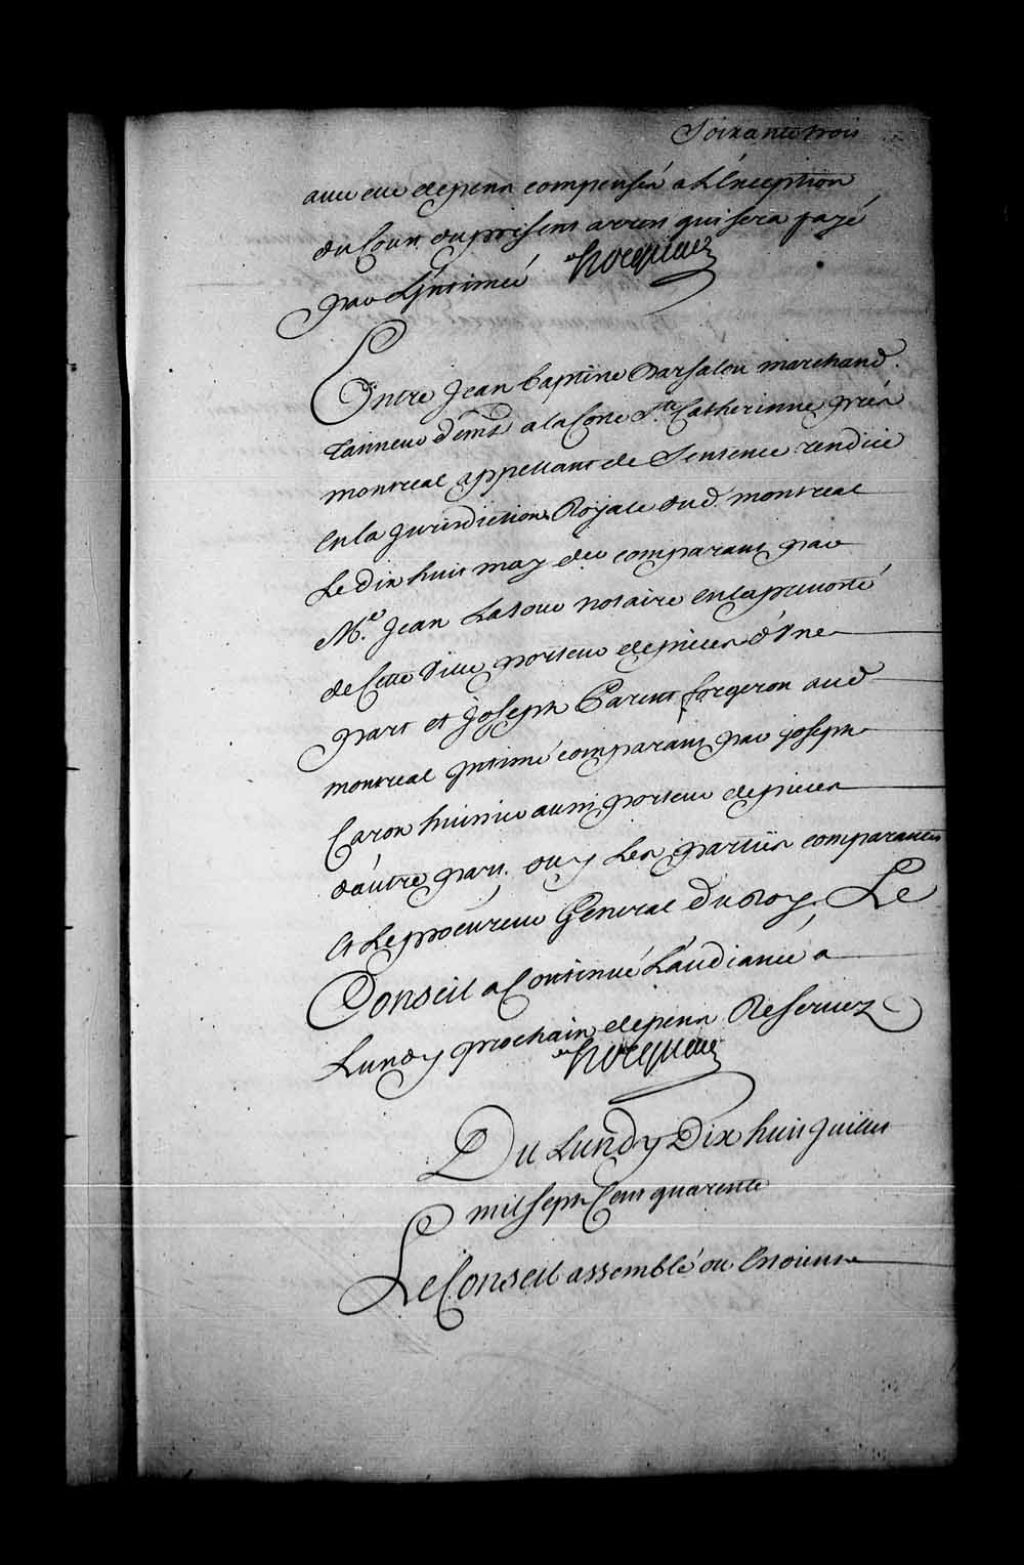 Soixante trois
avec eux depens compensés a L'Exception
du Cout du present arrest qui sera payé
par L'Intimé Hocquart
Entre Jean baptiste Darsalou marchand
Tanneur demt a la Coste Ste Catherinne près
montreal appellant de Sentence rendüe
en la Jurisdiction Royale dud. montreal
Le dix huit may der comparant par
Me. Jean Latour notaire en la prevosté
de Cette Ville porteur de pieces d'Une
part et Joseph Parent forgeron aud
montreal Intimé comparant par joseph
Caron huissier aussi porteur de pieces
d'autre part. ouy Les partiës comparantes
Et Le procureur General Du Roy. Le
Conseil a Continué L'audiance a
Lundy prochain, depens Reservez
Hocquart
Du Lundy Dix huit Juillet
mil sept Cent quarente
Le Conseil assemblé ou Estoient